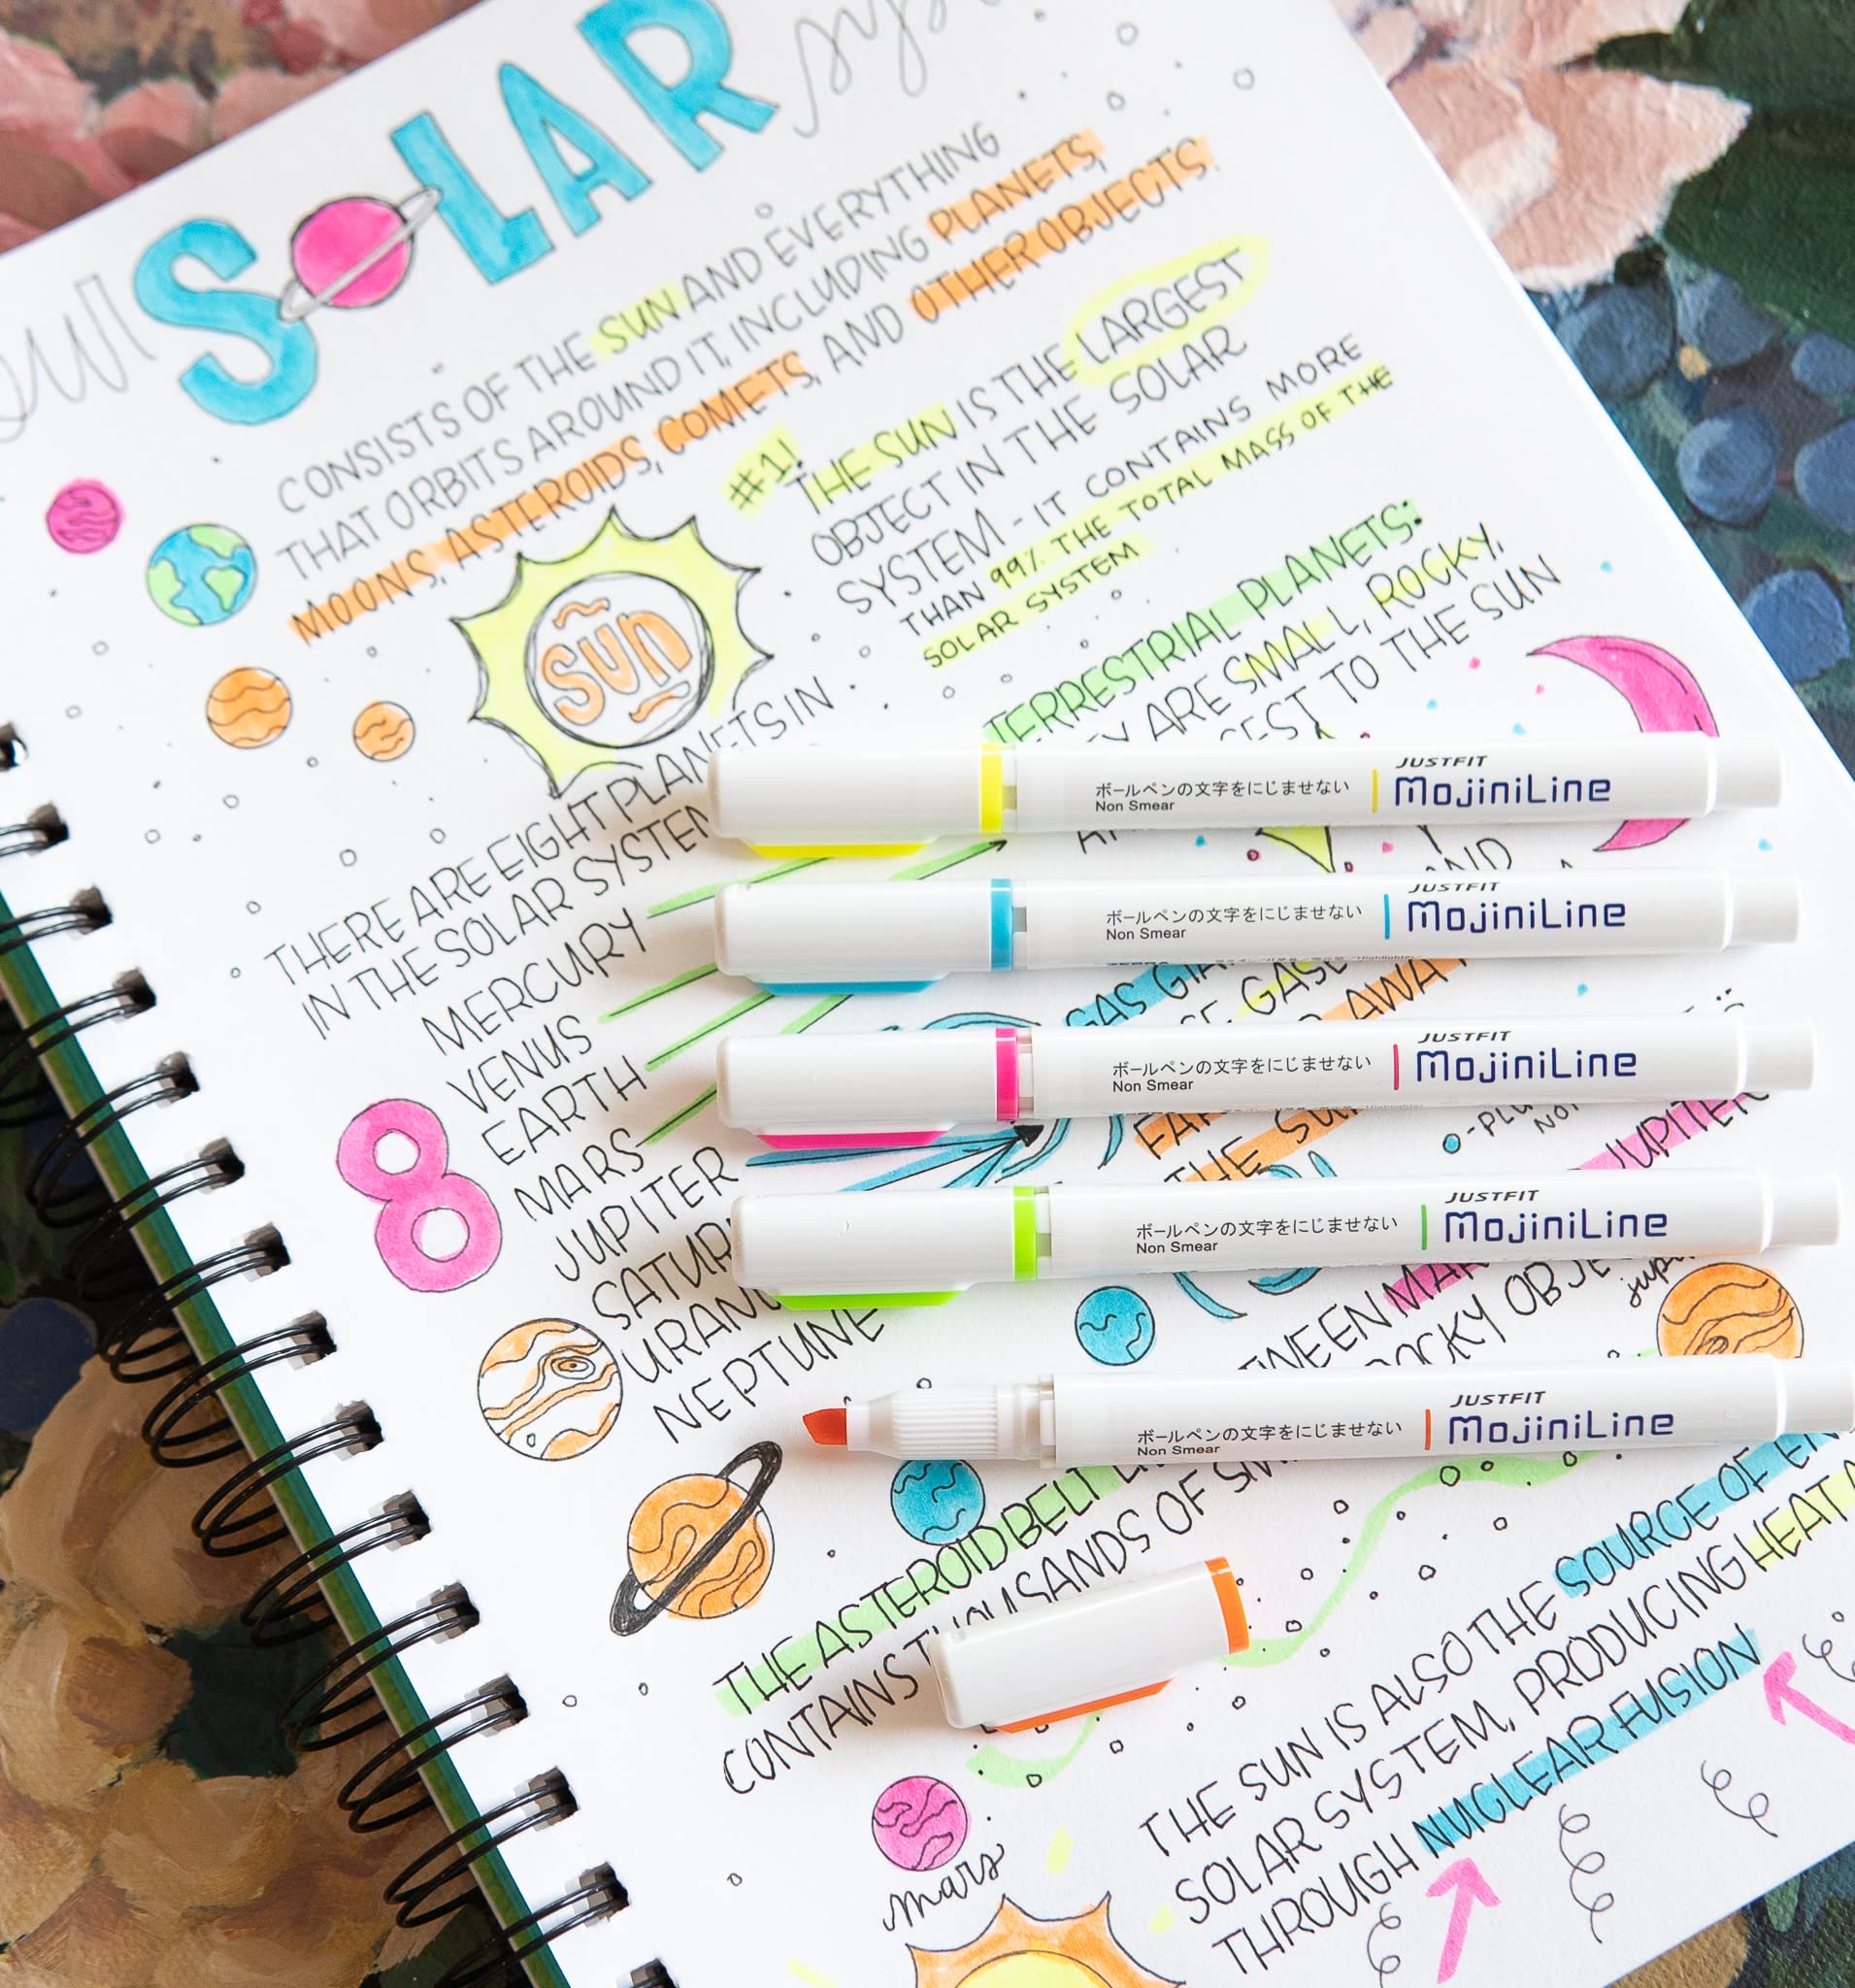 SOLAR
CONSISTS OF THE SUN AND EVERYTHING
THAT ORBITS AROUND IT, INCLUDING PLANETS,
MOONS, ASTEROIDS, COMETS, AND OTHER OBJECTS.
#1!
THE SUN IS THE LARGEST
OBJECT IN THE SOLAR
SYSTEM - IT CONTAINS MORE
THAN 99% THE TOTAL MASS OF THE
SOLAR SYSTEM
SUN
TERRESTRIAL PLANETS:
ARE SMALL, ROCKY,
TO THE SUN
THERE ARE EIGHT PLANETS IN
IN THE SOLAR SYSTEM
MERCURY
VENUS
EARTH
MARS
JUPITER
SATURN
URANUS
NEPTUNE
8
JUSTFIT
ボールペンの文字をにじませない
Non Smear
MojiniLine
AND
JUSTFIT
ボールペンの文字をにじませない
Non Smear
MojiniLine
GAS
AWAY
JUSTFIT
ボールペンの文字をにじませない
Non Smear
MojiniLine
THE SUN
JUPITER
JUSTFIT
ボールペンの文字をにじませない
Non Smear
MojiniLine
ROCKY
JUSTFIT
ボールペンの文字をにじませない
Non Smear
MojiniLine
THE ASTEROID BELT
CONTAINS THOUSANDS OF
mars
THE SUN IS ALSO THE SOURCE OF
SOLAR SYSTEM, PRODUCING HEAT
THROUGH NUCLEAR FUSION